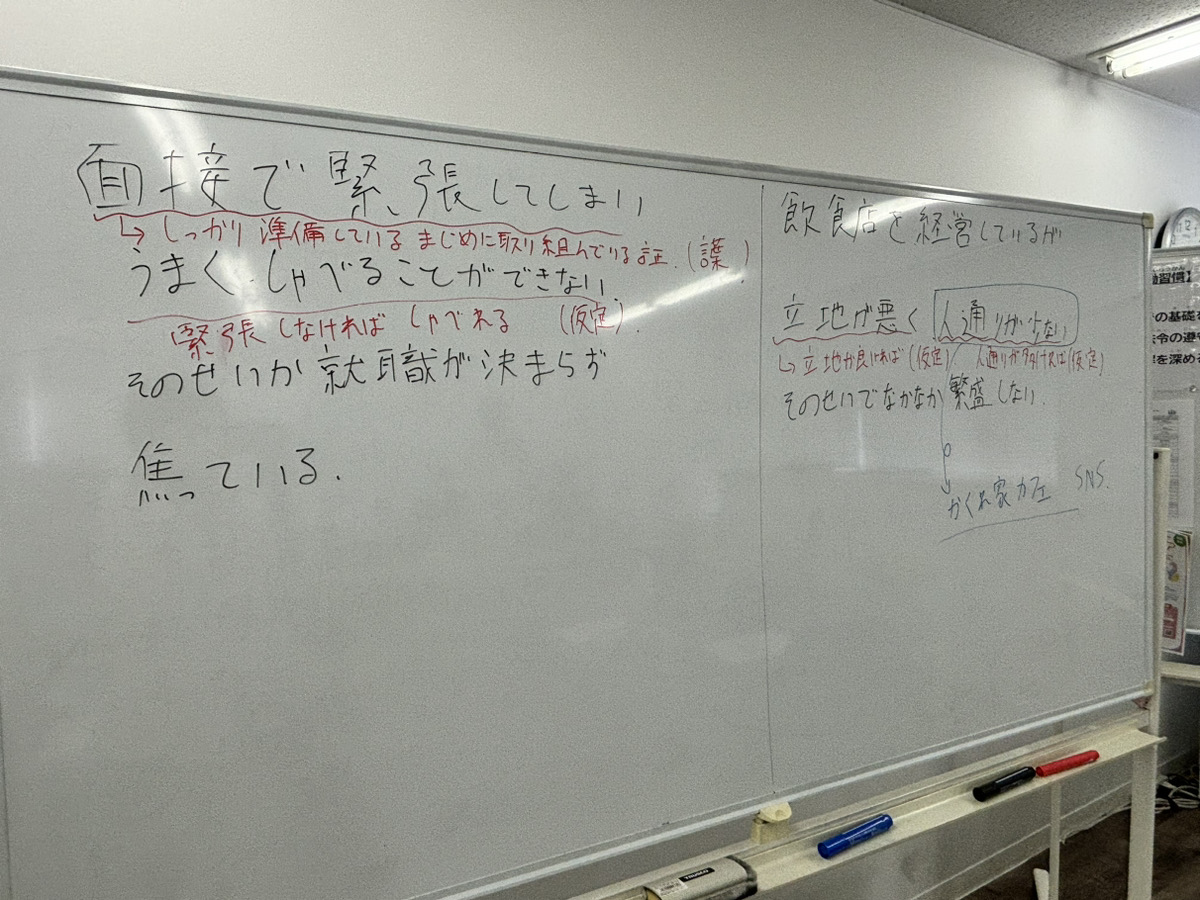 面接で緊張してしまい
↳ しっかり準備している まじめに取り組んでいる証.(謹)
うまくしゃべることができない.
緊張しなければ しゃべれる (仮定).
そのせいか就職が決まらず
焦っている.
飲食店を経営しているが
立地が悪く 人通りが少ない
↳ 立地が良ければ(仮定) / 人通りが多ければ(仮定)
そのせいでなかなか繁盛しない.
かくれ家カフェ SNS.
習信】
の基礎を
令の遵守
を深める
TRUSCO